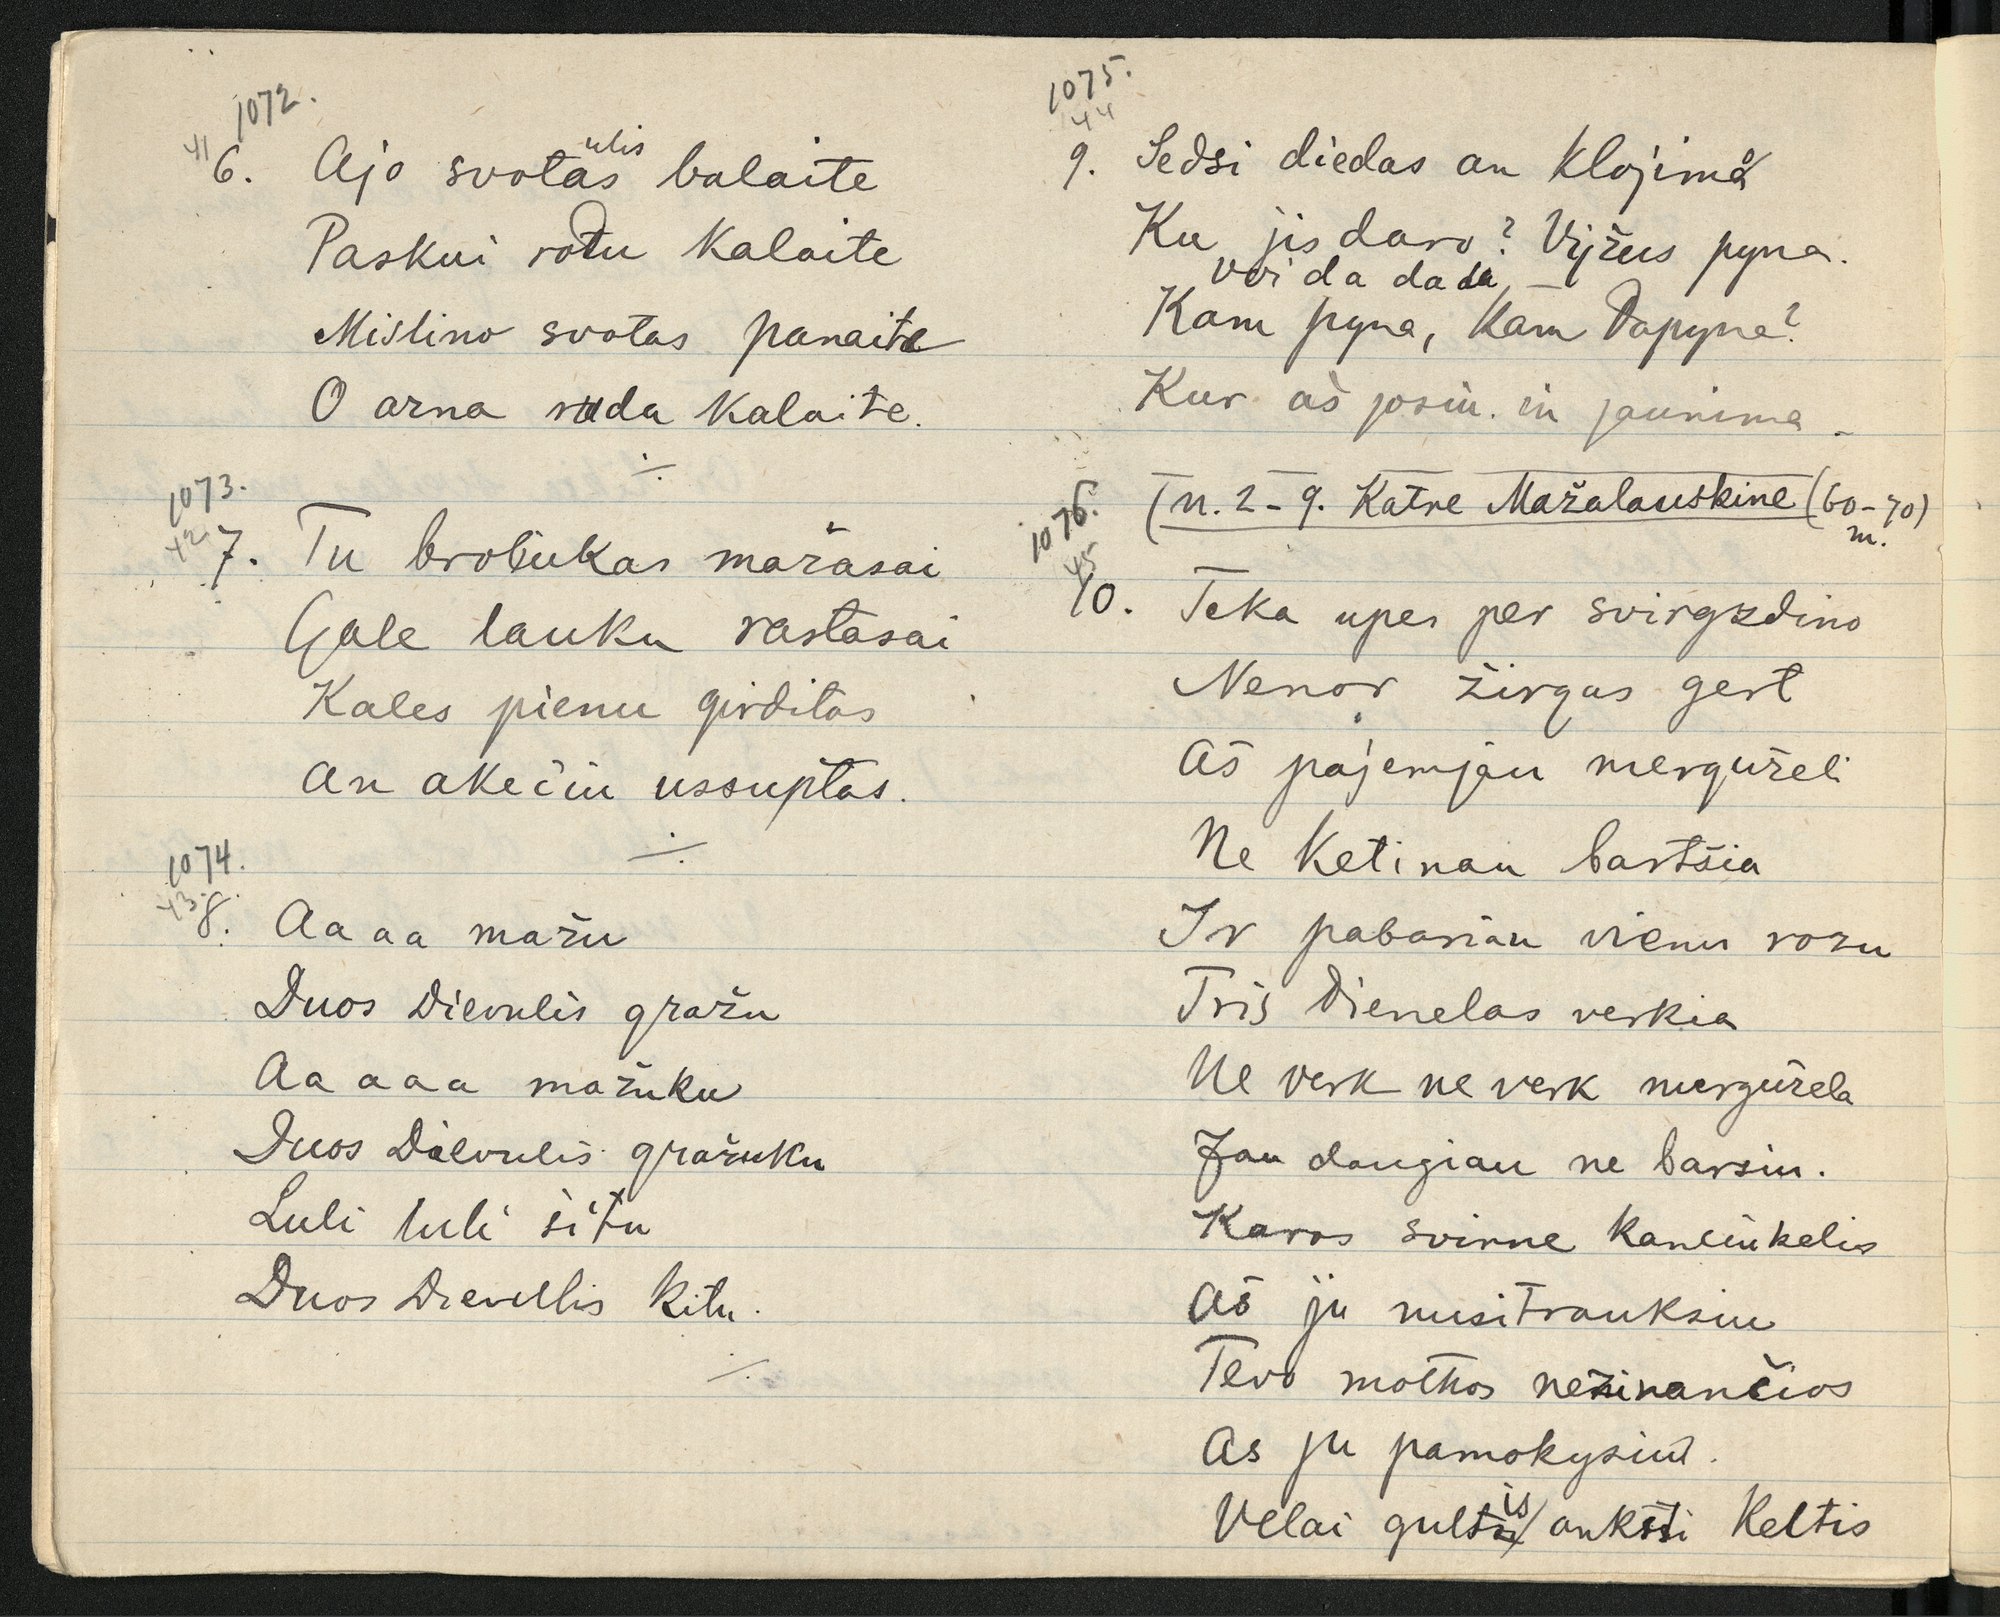 1072.
41
6. Ajo svotas ulis balaite
Paskui rodu kalaite
Mislino svotas panaite
O arna ruda kalaite.
1073.
42
7. Tu broliukas mažasai
Gale lauku rastasai
Kales pienu girditas
An akečiu ussuptas.
1074.
43
8. Aaaa mažu
Duos Dievulis gražu
Aaaaa mažuku
Duos Dievulis gražuku
Luli luli šitu
Duos Dievulis kitu.
1075.
44
9. Sedsi diedas an klojima
Ku jis daro? Vyžus pyna.
voi da dada
Kam pyna, kam dapyna?
Kur aš josiu in jaunima
(n. 2-9. Katre Mažalauskine (60-70)
m.
1076.
45
10. Teka upes per svirgzdino
Nenor žirgas gert
Aš pajemjau merguželi
Ne ketinau bartšia
Ir pabariau vienu rozu
Tris dienelas verkia
Ne verk ne verk mergužela
Jau daugiau ne barsiu.
Karos svirne kančiukelis
Aš ju nusitrauksiu
Tevo mothos nežinančios
As ju pamokysiu.
Velai gultis ankšti keltis